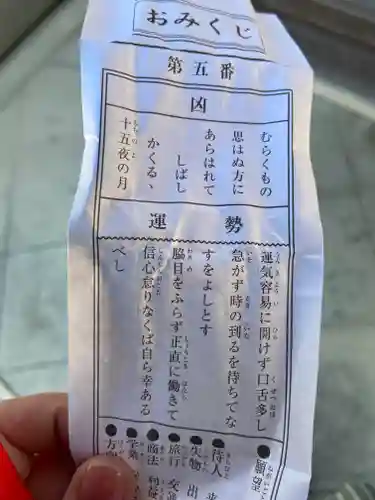 おみくじ
第五番
凶
むらくもの
思はぬ方に
あらはれて
しばし
かくるゝ
十五夜の月
運勢
運気容易に開けず口舌多し
急がず時の到るを待ちてな
すをよしとす
脇目をふらず正直に働きて
信心怠りなくば自ら幸ある
べし
●願望
●待人
●失物 出
●旅行 交
●商法 利
●学業
●方向